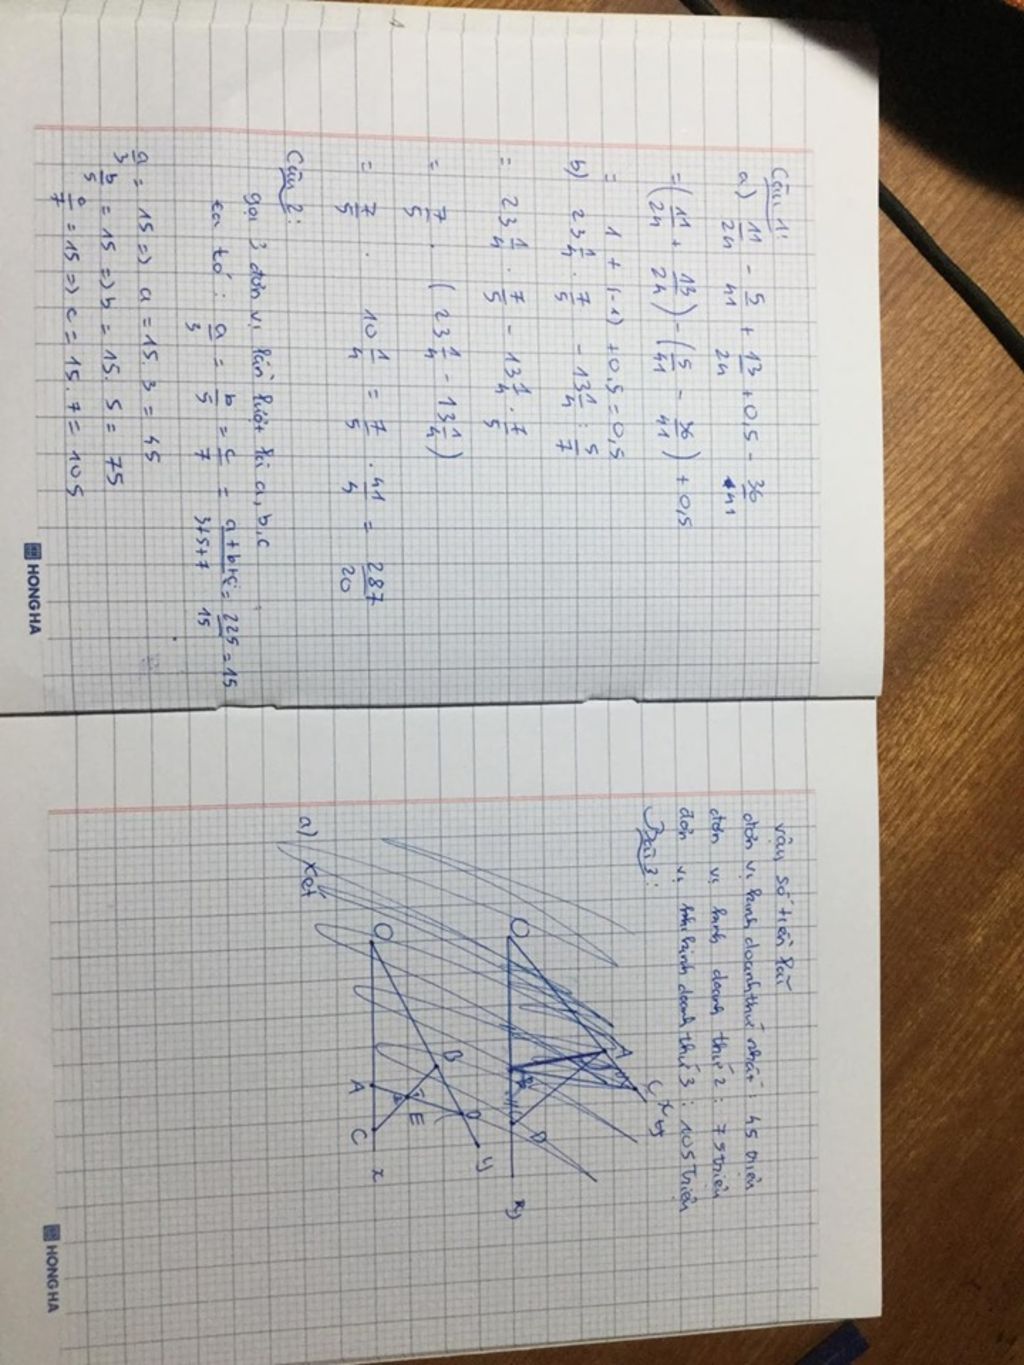 Câu 1:
a) 11/24 - 5/41 + 13/24 + 0,5 - 36/41
= (11/24 + 13/24) - (5/41 - 36/41) + 0,5
= 1 + (-1) + 0,5 = 0,5
b) 23 1/4 . 7/5 - 13 1/4 : 5/7
= 23 1/4 . 7/5 - 13 1/4 . 7/5
= 7/5 . (23 1/4 - 13 1/4)
= 7/5 . 10 1/4 = 7/5 . 41/4 = 287/20
Câu 2:
gọi 3 đơn vị lần lượt là a, b, c
ta có : a/3 = b/5 = c/7 = a+b+c/3+5+7 = 225/15 = 15
a/3 = 15 => a = 15. 3 = 45
b/5 = 15 => b = 15. 5 = 75
c/7 = 15 => c = 15. 7 = 105
HONG HA
vậy số tiền lãi
đơn vị kinh doanh thứ nhất : 45 triệu
đơn vị kinh doanh thứ 2 : 75 triệu
đơn vị kinh doanh thứ 3 : 105 triệu
Bài 3:
O A C x
D
O B D y
E
A C x
a) xét
HONG HA